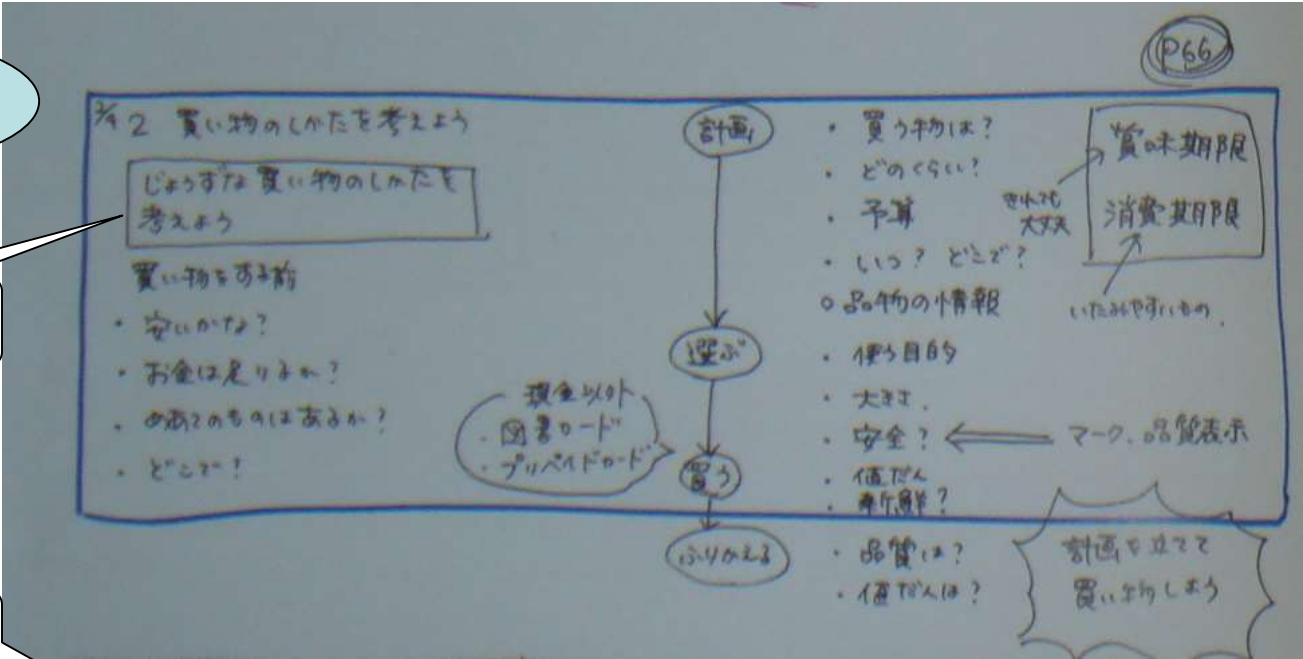 P66
2 買い物のしかたを考えよう
じょうずな買い物のしかたを
考えよう
買い物をする前
・安いかな?
・お金は足りるか?
・めあてのものはあるか?
・どこで?
計画
選ぶ
現金以外
・図書カード
・プリペイドカード
買う
ふりかえる
・買う物は?
・どのくらい?
・予算
・いつ? どこで?
○品物の情報
・使う目的
・大きさ.
・安全?
マーク、品質表示
・値だん
・新鮮?
・品質は?
・値だんは?
賞味期限
消費期限
きれても
大丈夫
いたみやすいもの.
計画を立てて
買い物しよう